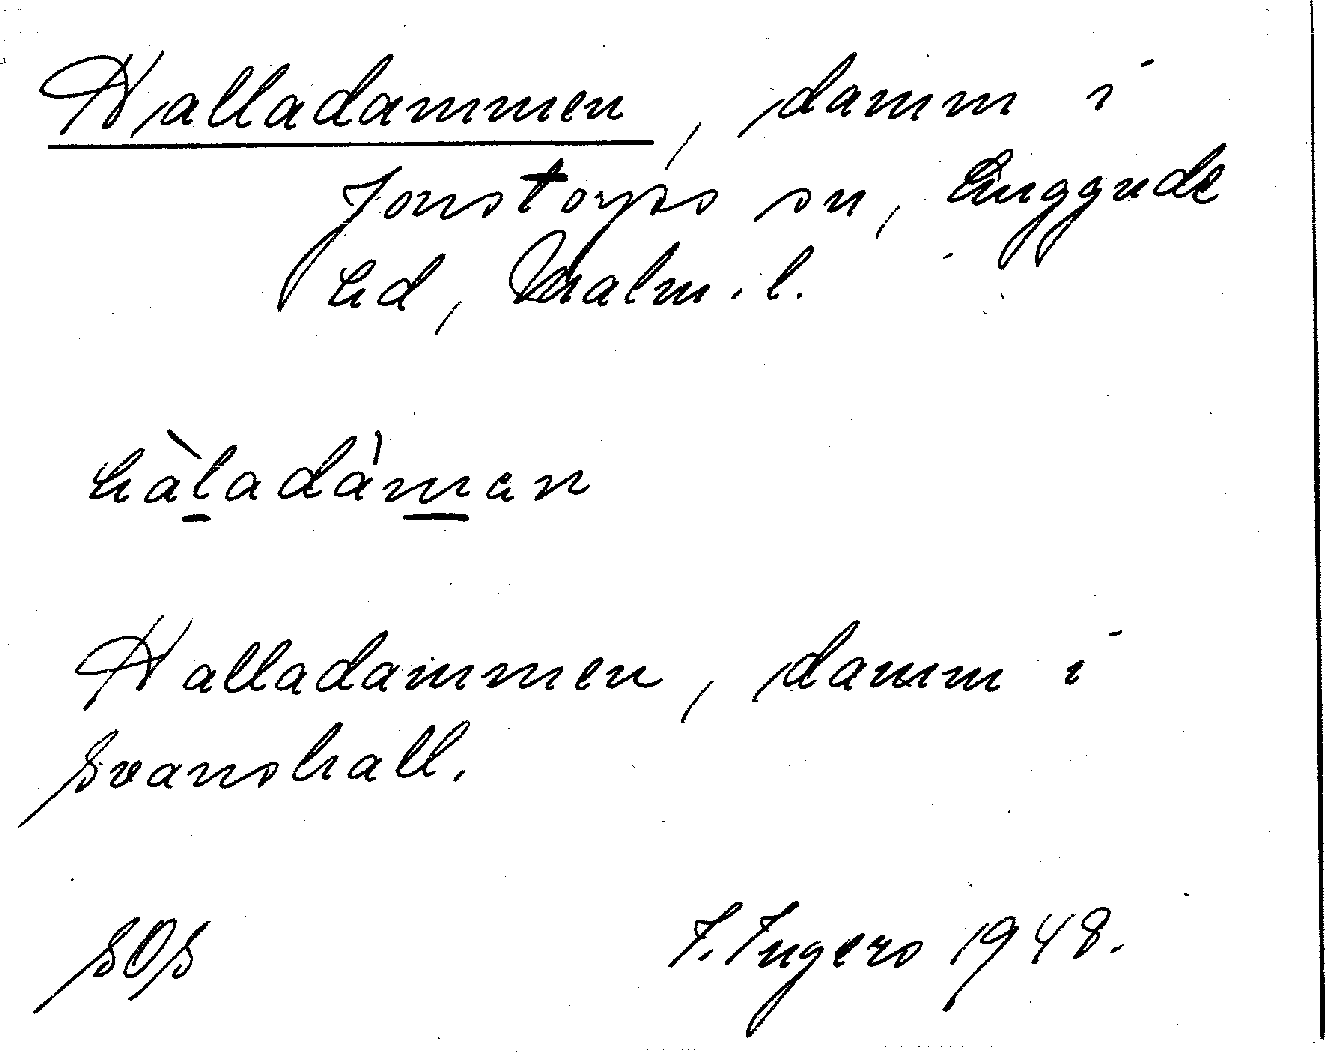 Halladammen, damm i
Jonstorps sn, Luggude
hd, Malm. l.
hàladám̲an
Halladammen, damm i
Svanshall.
SOS I. Ingers 1948.